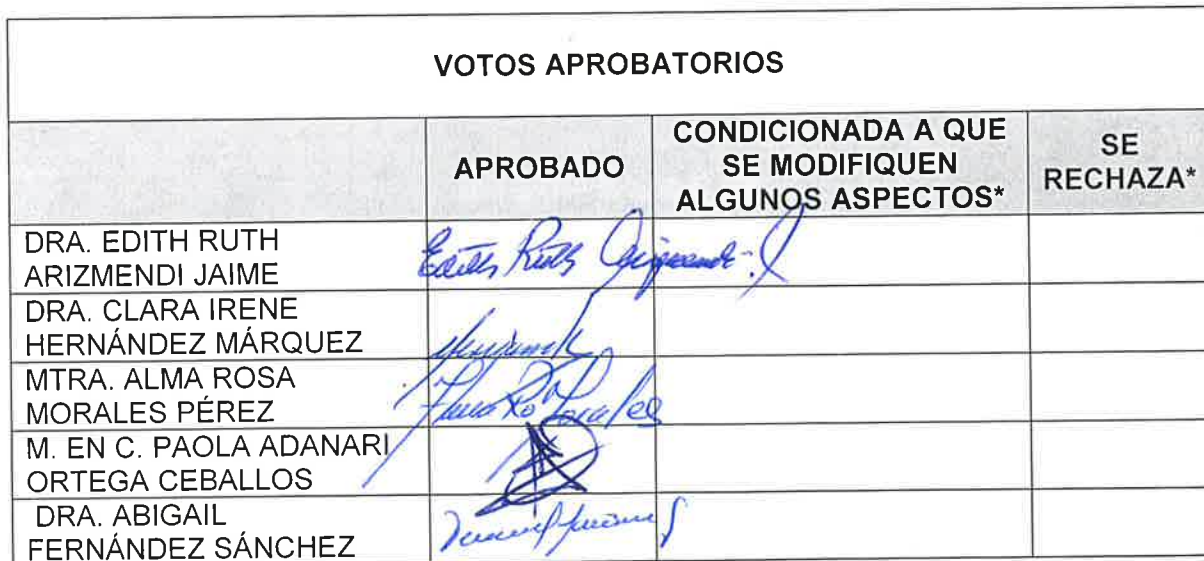 VOTOS APROBATORIOS
APROBADO
CONDICIONADA A QUE
SE MODIFIQUEN
ALGUNOS ASPECTOS*
SE
RECHAZA*
DRA. EDITH RUTH
ARIZMENDI JAIME
Edith Ruth
DRA. CLARA IRENE
HERNÁNDEZ MÁRQUEZ
MTRA. ALMA ROSA
MORALES PÉREZ
M. EN C. PAOLA ADANARI
ORTEGA CEBALLOS
DRA. ABIGAIL
FERNÁNDEZ SÁNCHEZ